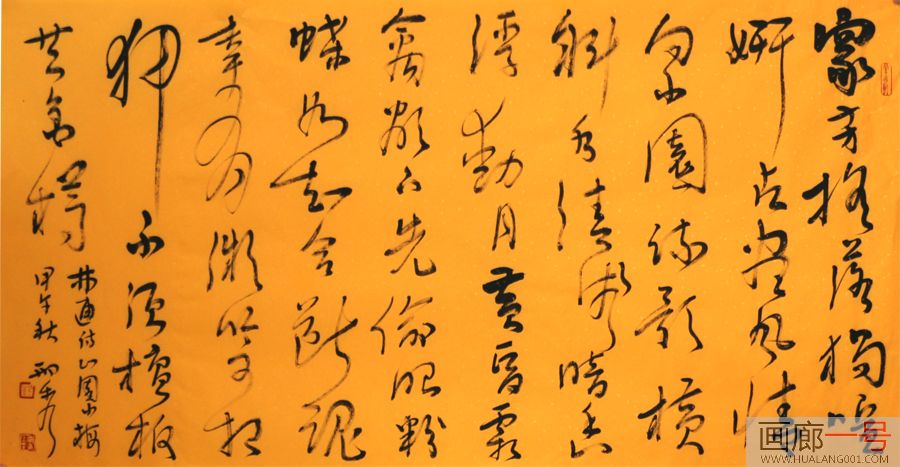 眾芳摇落獨暄
妍占尽风情
向小園疏影横
斜水清浅暗香
浮動月黄昏霜
禽欲下先偷眼粉
蝶如知合断魂
幸有微吟可相
狎不须檀板
共金樽
林逋诗山園小梅
甲午秋
画廊一号
WWW.HUALANG001.COM